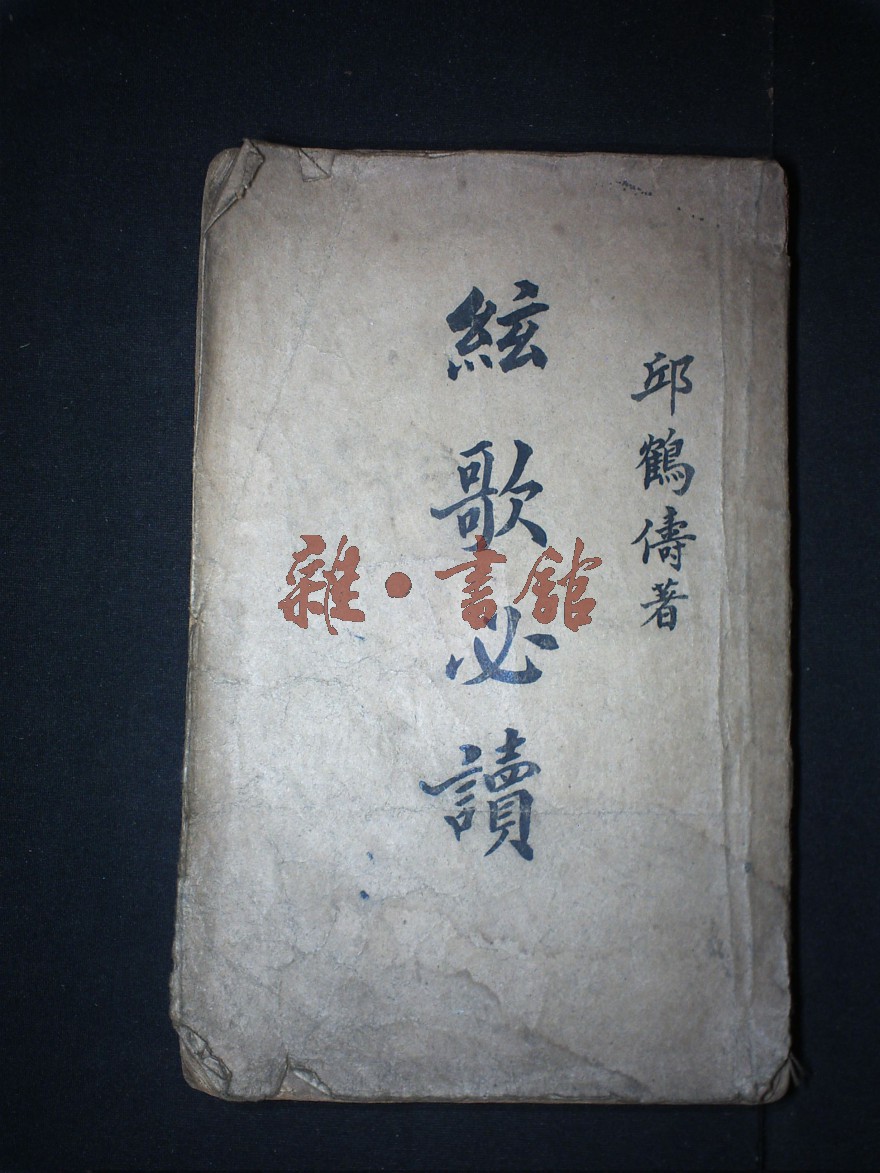 邱鶴儔著
絃歌必讀
雜·書館